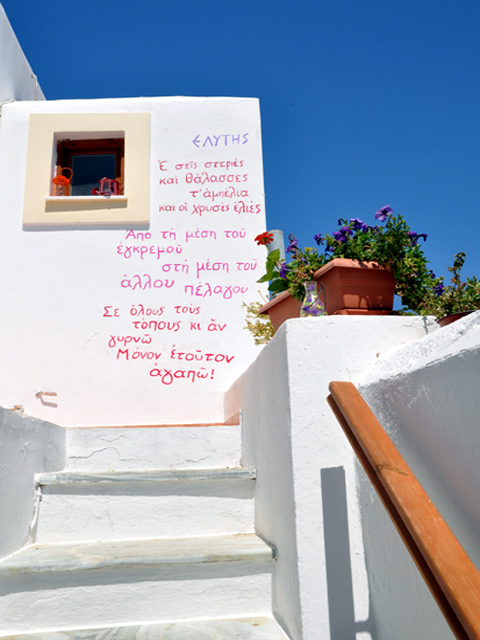 ΕΛΥΤΗΣ
Ἑ σεῖς στεριές
καὶ θάλασσες
τ'ἀμπέλια
και οἱ χρυσές ἐλιές
Ἀπο τὴ μέση τοῦ
ἐγκρεμοῦ
στὴ μέση τοῦ
ἄλλου πέλαγου
Σε ὅλους τούς
τόπους κι ἄν
γυρνῶ
Μόνον ἐτοῦτον
ἀγαπῶ!